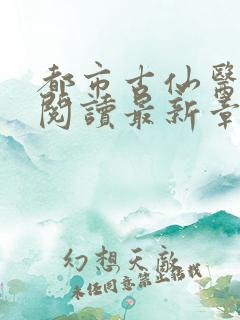 都市古仙醫
閱讀最新章
幻想天敵
未經同意禁止搭載